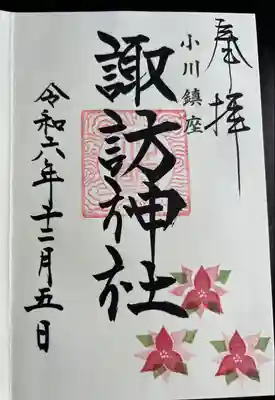 奉拝
小川鎮座
諏訪神社
令和六年十二月五日